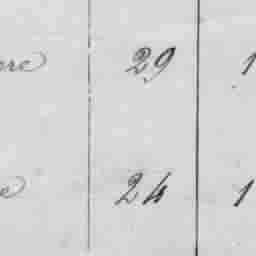 ere 29 1
e 24 1